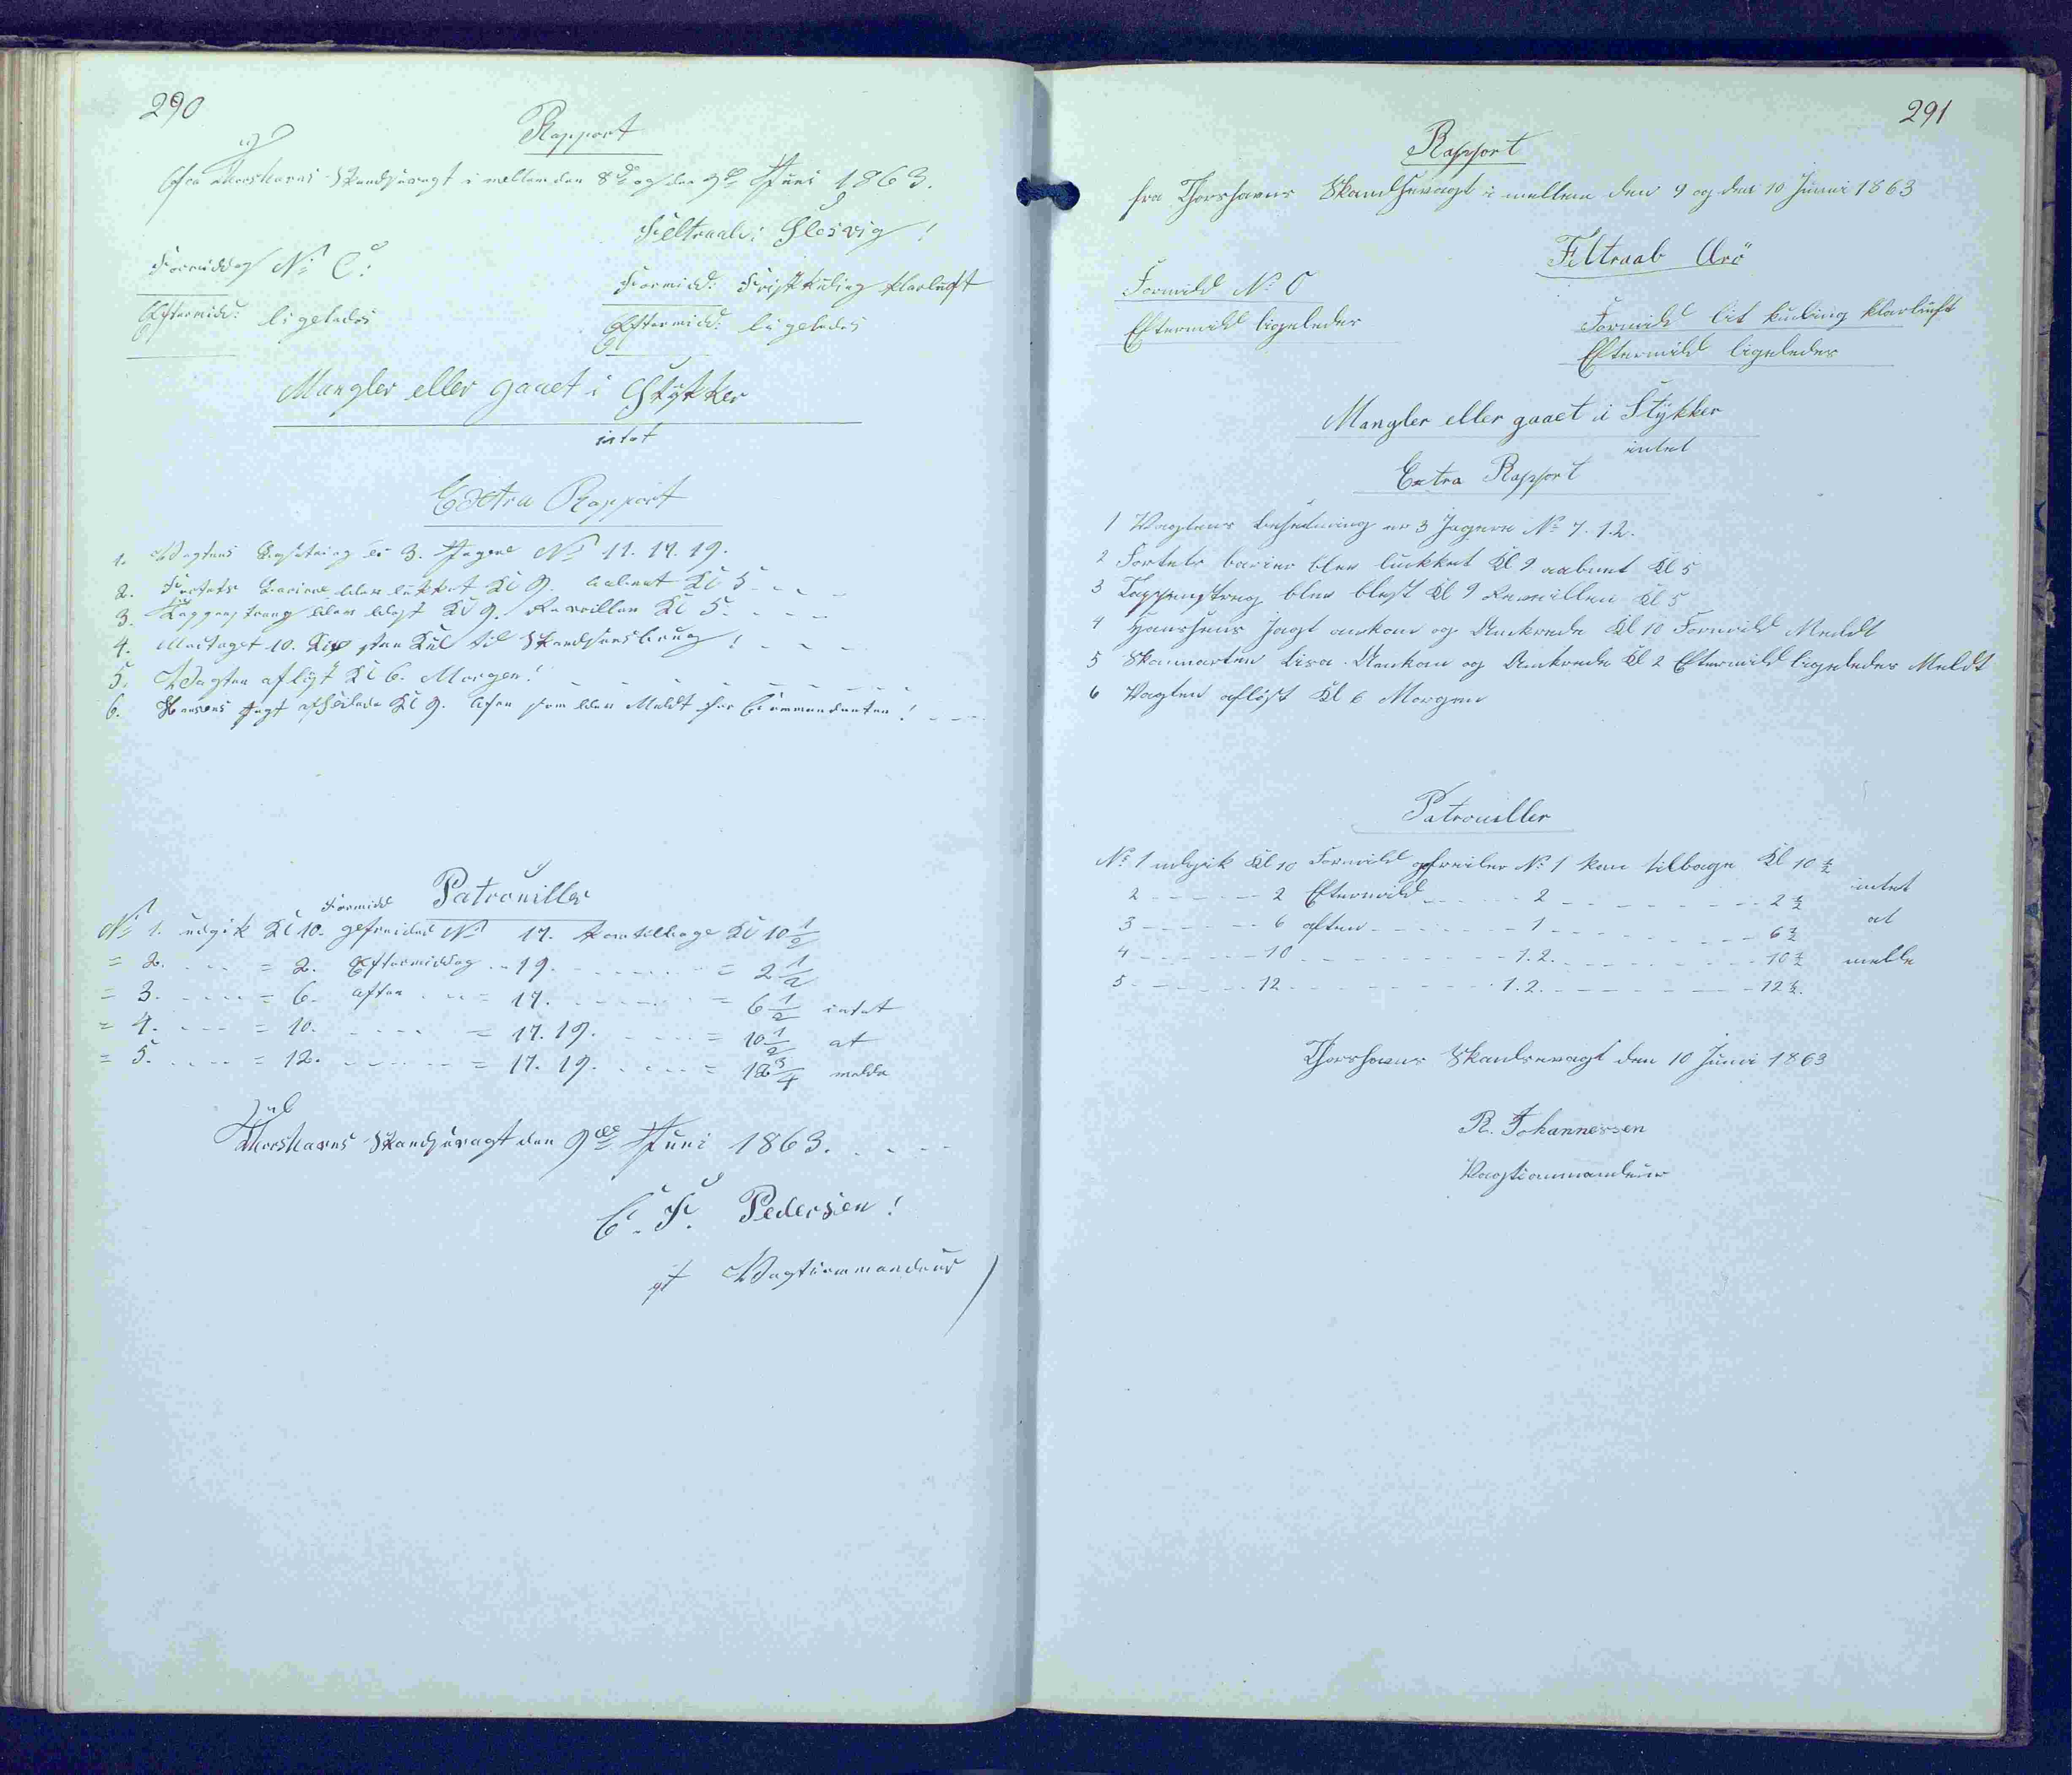 290
Rapport
fra Thorshavns Skandsevagt i mellem den 8de og den 9de Juni 1863.
Feltraab: Slesvig!
Formiddag No O:
Eftermidd: ligeledes
Formidd: Frisk Kuling klarluft
Eftermidd: ligeledes
Mangler eller gaaet i Stykker
intet
Extra Rapport
1. Vagtens Besætning er 3. Jægere No 11. 17. 19.
2. Fortets Bariere blev lukket Kl 9. aabnet Kl 5
3. Tappenstreng blev blæst Kl 9. Revaillen Kl 5.
4. Modtaget 10. sten Kul til Skandsens brug!
5. Vagten afløst Kl 6. Morgen!
6. Hansens Jagt afseilede Kl 9. Aften som blev Meldt for Commandanten!
Patrouiller
No 1. udgik Kl 10. Formidd gefreider No 17. kom tilbage Kl 10 1/2
= 2. = 2. Eftermiddag 19. = 2 1/2
= 3. = 6. aften = 17. = 6 1/2 intet
= 4. = 10. = 17. 19. = 10 1/2 at
= 5. = 12. = 17. 19. = 12 3/4 melde
Thorshavns Skandsevagt den 9de Juni 1863.
C. F. Pedersen!
Vagtcommandeur
291
Rapport
fra Thorshavns Skandsevagt i mellem den 9 og den 10 Junni 1863
Feltraab Arö
Formidd No O
Eftermidd ligeledes
Formidd lit kuling klarluft
Eftermidd ligeledes
Mangler eller gaaet i Stykker
intet
Extra Rapport
1 Vagtens besetning er 3 Jægere No 7. 1.2.
2 Fortets barier blev luckket Kl 9 aabnet Kl 5
3 Tappenstreg blev blest Kl 9 Reveillen Kl 5
4 Hansens Jagt ankom og Ankrede Kl 10 Formidd Meldt
5 Skonnarten Lisa Annkom og Ankrede Kl 2 Eftermidd ligeledes Meldt
6 Vagten afløst Kl 6 Morgen
Patrouiller
No 1 udgik Kl 10 Formidd gefreiler No 1 kom tilbage Kl 10 1/2
2 2 Eftermidd 2 2 1/2 intet
3 6 aften 1 6 1/2 at
4 10 1.2. 10 1/2 melde
5 12 1.2. 12 1/2.
Thorshavns Skandsevagt den 10 Junni 1863
R. Johannessen
Vagtcommandeur